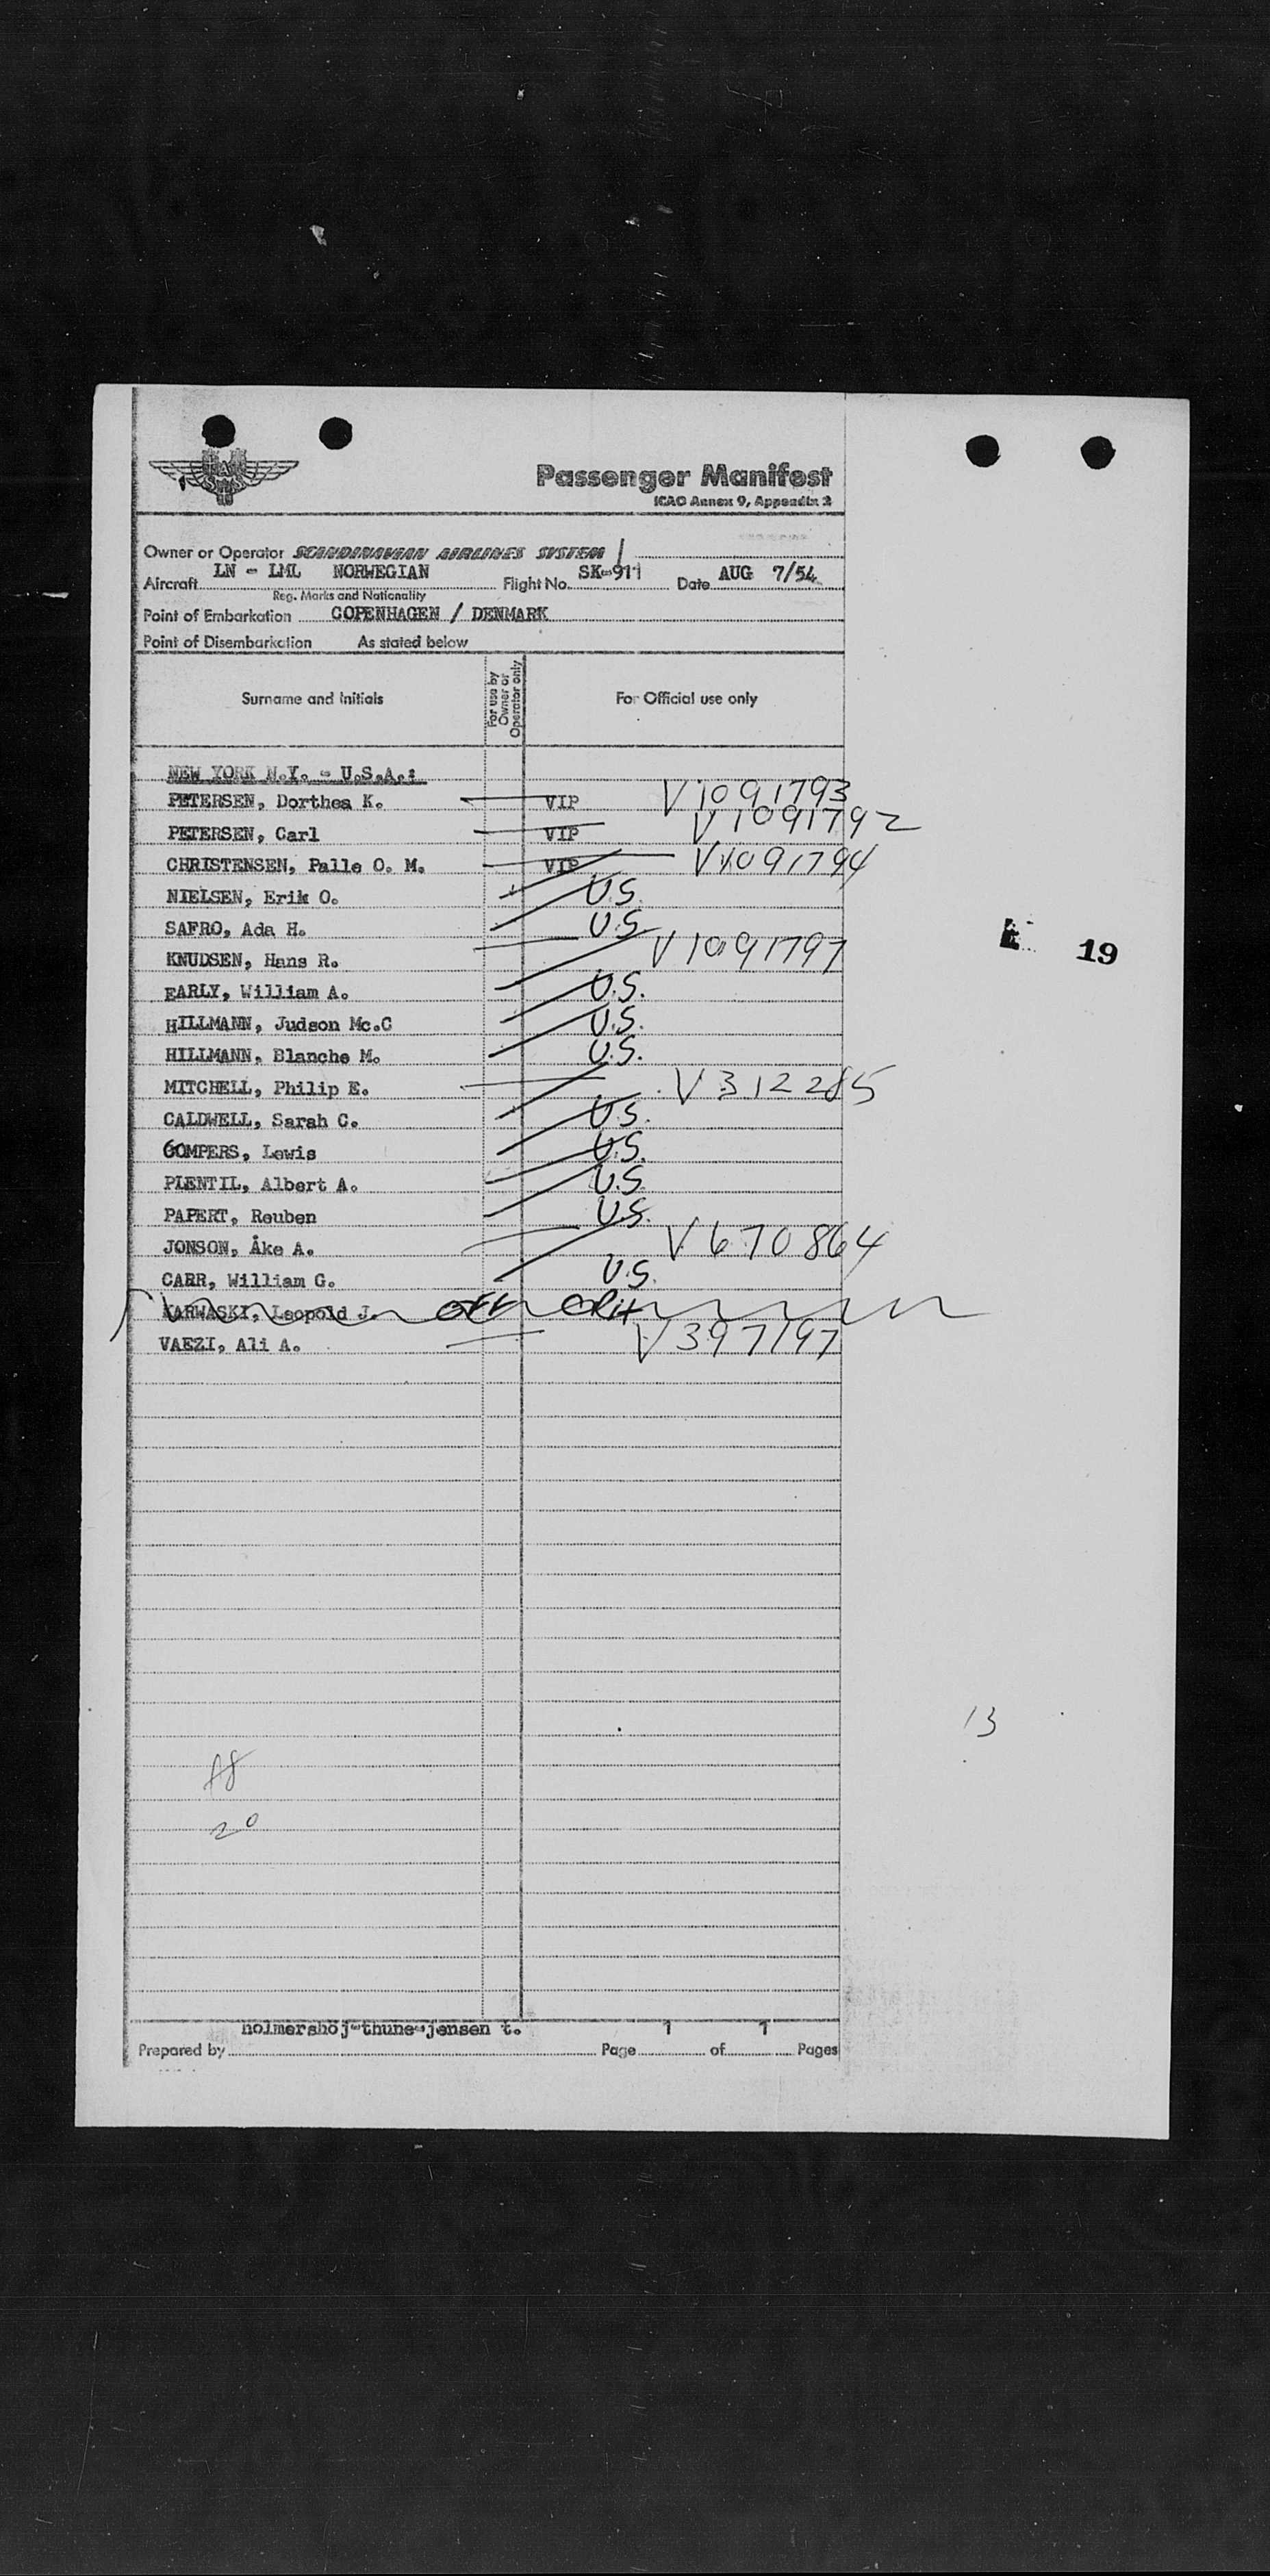 SAS
Passenger Manifest
ICAO Annex 9, Appendix 2
Owner or Operator SCANDINAVIAN AIRLINES SYSTEM
Aircraft LN - LML NORWEGIAN Flight No. SK-911 Date AUG 7/54
Reg. Marks and Nationality
Point of Embarkation COPENHAGEN / DENMARK
Point of Disembarkation As stated below
Surname and Initials For use by Owner or Operator only For Official use only
NEW YORK N.Y. - U.S.A.:
PETERSEN, Dorthea K. VIP V1091793
PETERSEN, Carl VIP V1091792
CHRISTENSEN, Palle O. M. VIP V1091794
NIELSEN, Erik O. U.S.
SAFRO, Ada H. U.S.
KNUDSEN, Hans R. V1091797
E 19
EARLY, William A. U.S.
HILLMANN, Judson Mc.C U.S.
HILLMANN, Blanche M. U.S.
MITCHELL, Philip E. V312285
CALDWELL, Sarah C. U.S.
GOMPERS, Lewis U.S.
PLENTIL, Albert A. U.S.
PAPERT, Reuben U.S.
JONSON, Åke A. V670864
CARR, William G. U.S.
KARWASKI, Leopold J. off
VAEZI, Ali A. V397197
13
18
20
holmershöj-thune-jensen t. 1 1
Prepared by Page of Pages